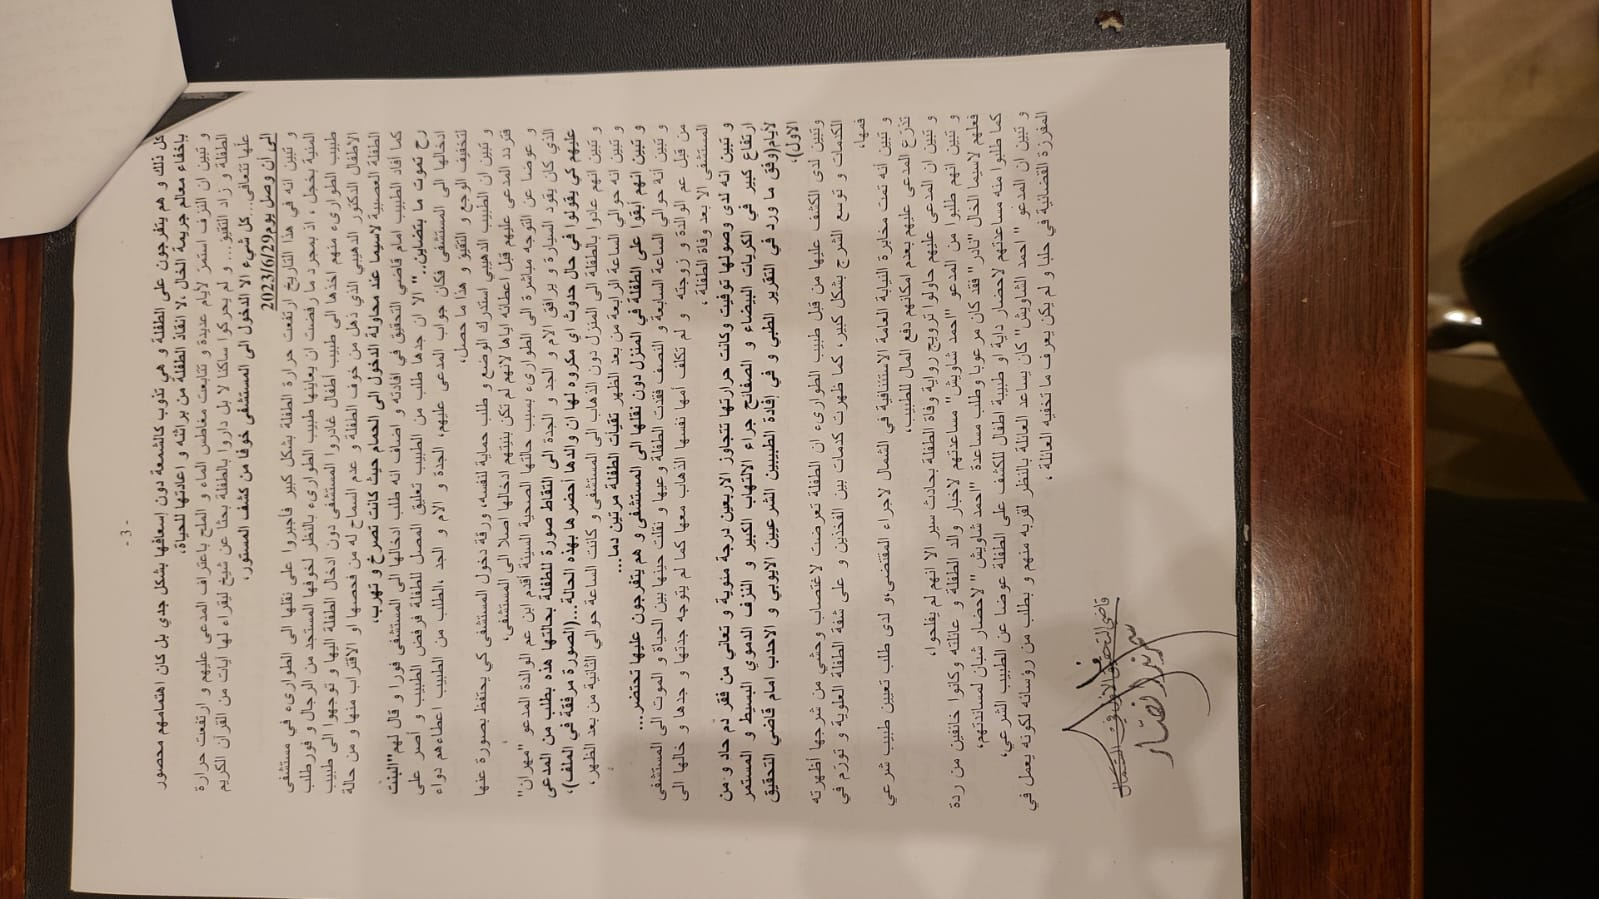 - 3 -
كل ذلك و هم يتفرجون على الطفلة و هي تذوب كالشمعة دون إسعافها بشكل جدي بل كان اهتمامهم محصور
بإخفاء معالم جريمة الخال ,لا انقاذ الطفلة من براثنه و اعادتها للحياة,
و تبين ان النزف استمر لأيام عديدة و تتابعت مغاطس الماء و الملح باعتراف المدعى عليهم و ارتفعت حرارة
الطفلة و زاد التقيؤ... و لم يحركوا ساكنا لا بل داروا بالطفلة بحثا عن شيخ ليقراء لها ايات من القرآن الكريم
علها تتعافى... كل شيء الا الدخول الى المستشفى خوفا من كشف المستور,
الى أن وصل يوم 2023/6/29
و تبين انه في هذا التاريخ ارتفعت حرارة الطفلة بشكل كبير فأجبروا على نقلها الى الطوارىء في مستشفى
المنية بخجل ، اذ بمجرد ما رفضت ان يعاينها طبيب الطوارىء بالنظر لخوفها المستجد من الرجال و فور طلب
طبيب الطوارىء منهم اخذها الى طبيب أطفال غادروا المستشفى دون ادخال الطفلة اليها و توجهوا الى طبيب
الاطفال الدكتور الدهيبي الذي ذهل من خوف الطفلة و عدم السماح له من فحصها او الاقتراب منها و من حالة
الطفلة العصبية لاسيما عند محاولة الدخول الى الحمام حيث كانت تصرخ و تهرب,
كما أفاد الطبيب امام قاضي التحقيق في افادته و اضاف انه طلب ادخالها الى المستشفى فورا و قال لهم "البنت
رح تموت ما بتضاين.." الا ان جدها طلب من الطبيب تعليق المصل للطفلة فرفض الطبيب و أصر على
ادخالها الى المستشفى فكان جواب المدعى عليهم، الجدة و الام و الجد ,الطلب من الطبيب اعطاءهم دواء
لتخفيف الوجع و التقيؤ و هذا ما حصل,
و تبين ان الطبيب الدهيبي استدرك الوضع و طلب حماية لنفسه، ورقة دخول المستشفى كي يحتفظ بصورة عنها
فتردد المدعى عليهم قبل اعطائه اياها لانهم لم تكن بنيتهم ادخالها اصلا الى المستشفى,
و عوضا عن التوجه مباشرة الى الطوارىء بسبب حالتها الصحية السيئة أقدم ابن عم الوالدة المدعو "مهران"
الذي كان يقود السيارة و يرافق الام و الجد و الجدة الى التقاط صورة للطفلة بحالتها هذه بطلب من المدعى
عليهم كي يقولوا في حال حدوث اي مكروه لها ان والدها أحضرها بهذه الحالة...(الصورة مرفقة في الملف),
و تبين انهم عادوا بالطفلة الى المنزل دون الذهاب الى المستشفى و كانت الساعة حوالي الثانية من بعد الظهر,
و تبين انه حوالي الساعة الرابعة من بعد الظهر تقيأت الطفلة مرتين دما...
و تبين انهم أبقوا على الطفلة في المنزل دون نقلها الى المستشفى و هم يتفرجون عليها تحتضر...
و تبين أنة حوالي الساعة السابعة و النصف فقدت الطفلة وعيها و نقلت حينها بين الحياة و الموت الى المستشفى
من قبل عم الوالدة و زوجته و لم تكلف أمها نفسها الذهاب معها كما لم يتوجه جدتها و جدها و خالها الى
المستشفى الا بعد وفاة الطفلة,
و تبين انه لدى وصولها توفيت وكانت حرارتها تتجاوز الاربعين درجة مئوية و تعاني من فقر دم حاد و من
ارتفاع كبير في الكريات البيضاء و الصفائح جراء الالتهاب الكبير و النزف الدموي البسيط و المستمر
لأيام(وفق ما ورد في التقرير الطبي و في إفادة الطبيبين الشرعيين الايوبي و الاحدب امام قاضي التحقيق
الاول),
وتبين لدى الكشف عليها من قبل طبيب الطوارىء ان الطفلة تعرضت لاغتصاب وحشي من شرجها أظهرته
الكدمات و توسع الشرج بشكل كبير، كما ظهرت كدمات بين الفخذين و على شفة الطفلة العلوية و تورم في
فمها,
و تبين أنه تمت مخابرة النيابة العامة الاستئنافية في الشمال لاجراء المقتضى,و لدى طلب تعيين طبيب شرعي
تذرع المدعى عليهم بعدم امكانهم دفع المال للطبيب,
و تبين ان المدعى عليهم حاولوا ترويج رواية وفاة الطفلة بحادث سير الا انهم لم يفلحوا,
و تبين انهم طلبوا من المدعو "احمد شاويش" مساعدتهم لاخبار والد الطفلة و عائلته وكانوا خائفين من ردة
فعلهم لاسيما الخال "نادر" فقد كان مرعوبا وطلب مساعدة "احمد شاويش "لاحضار شبان لمساندتهم,
كما طلبوا منه مساعدتهم لاحضار داية او طبيبة اطفال للكشف على الطفلة عوضا عن الطبيب الشرعي,
و تبين ان المدعو " احمد الشاويش" كان يساعد العائلة بالنظر لقربه منهم و بطلب من رؤسائه لكونه يعمل في
المفرزة القضائية في حلبا و لم يكن يعرف ما تخفيه العائلة,
قاضي التحقيق الاول في الشمال
سمرندا نصار